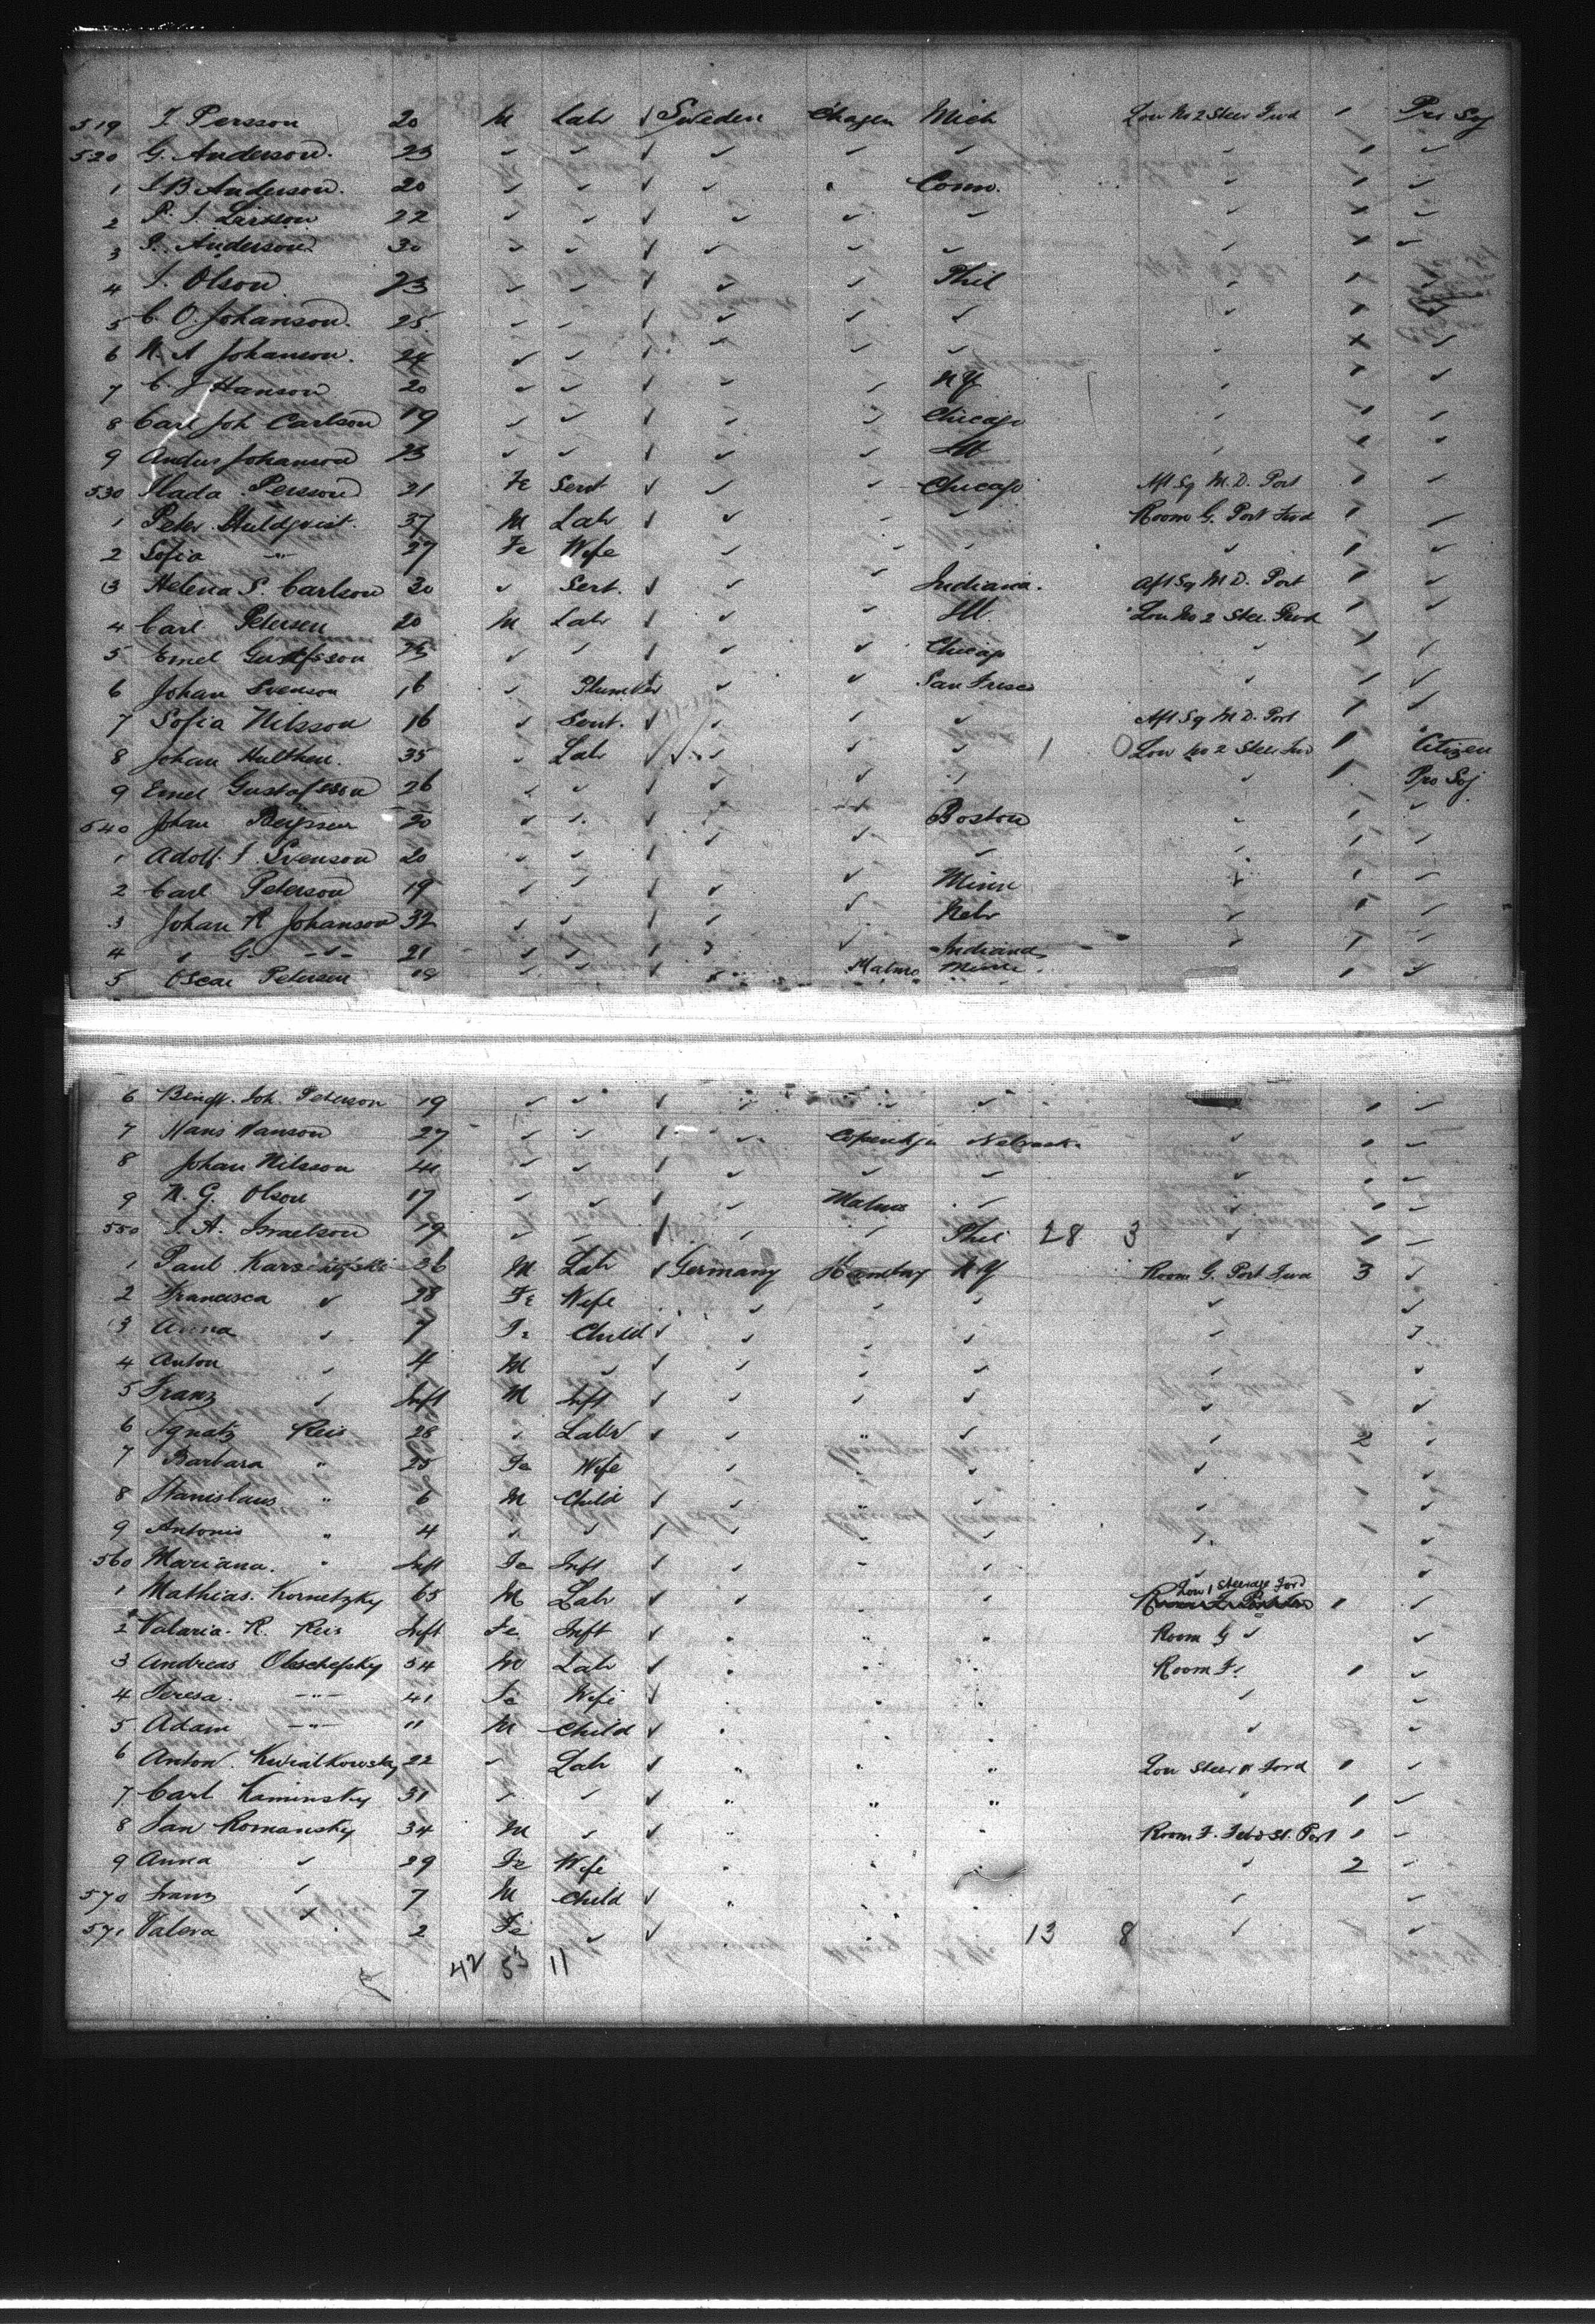 519 I. Persson 20 M Labr ✓ Sweden C'hagen Mich Low No 2 Steer Fwd 1 Pro Soj
520 G. Anderson. 23 ✓ ✓ ✓ ✓ ✓ ✓ ✓ 1 ✓
1 I B Anderson. 20 ✓ ✓ ✓ ✓ Conn. ✓ 1 ✓
2 P. I. Larsson 22 ✓ ✓ ✓ ✓ ✓ ✓ ✓ 1 ✓
3 P. Anderson 30 ✓ ✓ ✓ ✓ ✓ ✓ ✓ 1 ✓
4 I. Olson 23 ✓ ✓ ✓ ✓ ✓ Phil ✓ 1
5 C. O. Johanson. 25 ✓ ✓ ✓ ✓ ✓ ✓ ✓ 1 ✓
6 N. A Johanson. 24 ✓ ✓ ✓ ✓ ✓ ✓ ✓ 1 ✓
7 C. J Hanson 20 ✓ ✓ ✓ ✓ ✓ N Y ✓ 1 ✓
8 Carl Joh Carlson 19 ✓ ✓ ✓ ✓ ✓ Chicago ✓ 1 ✓
9 Andus Johanson 23 ✓ ✓ ✓ ✓ ✓ Ill ✓ 1 ✓
530 Hada Persson 21 Fe Sert ✓ ✓ ✓ Chicago Aft Sq M. D. Port 1 ✓
1 Peter Huldqvist. 37 M Labr ✓ ✓ ✓ ✓ Room G. Port Fwd 1 ✓
2 Sofia -"- 27 Fe Wife ✓ ✓ ✓ ✓ 1 ✓
3 Helena S. Carlson 30 ✓ Sert. ✓ ✓ ✓ Indiana. Aft Sq M D. Port 1 ✓
4 Carl Petersen 20 M Labr ✓ ✓ ✓ Ill. Low No 2 Stee. Fwd 1 ✓
5 Emel Gustafsson 25 ✓ ✓ ✓ ✓ ✓ Chicago ✓ 1 ✓
6 Johan Svenson 16 ✓ Plumber ✓ ✓ San Frisco ✓ 1 ✓
7 Sofia Nilsson 16 ✓ Sert. ✓ ✓ ✓ ✓ Aft Sq M D. Port 1 ✓
8 Johan Hulthen. 35 ✓ Labr ✓ ✓ ✓ ✓ 1 0 Low No 2 Steer Fwd 1 Citizen
9 Emel Gustafsson 26 ✓ ✓ ✓ ✓ ✓ ✓ ✓ 1 Pro Soj
540 Johan 20 ✓ ✓ ✓ ✓ ✓ Boston ✓ 1 ✓
1 Adolf. I. Svenson 20 ✓ ✓ ✓ ✓ ✓ ✓ ✓ 1 ✓
2 Carl Peterson 19 ✓ ✓ ✓ ✓ ✓ Minn ✓ 1 ✓
3 Johan A Johanson 32 ✓ ✓ ✓ ✓ ✓ Nebr ✓ 1 ✓
4 " G. -"- 21 ✓ ✓ ✓ ✓ ✓ Indiana ✓ 1 ✓
5 Oscar Petersen 18 ✓ ✓ ✓ ✓ Malmo Minn 1 ✓
6 Bengt. Joh. Peterson 19 ✓ ✓ ✓ ✓ ✓ ✓ 1 ✓
7 Hans Hanson 27 ✓ ✓ ✓ ✓ Copenhgn Nebrask. ✓ 1 ✓
8 Johan Nilsson 41 ✓ ✓ ✓ ✓ ✓ ✓ ✓ 1 ✓
9 N. G. Olson 17 ✓ ✓ ✓ ✓ Malmo ✓ ✓ 1 ✓
550 I. A. Israelson 19 ✓ ✓ ✓ ✓ ✓ Phil 28 3 ✓ 1 ✓
1 Paul 36 M Labr ✓ Germany Hamburg N Y Room G. Port Fwd 3 ✓
2 Francisca ✓ 28 Fe Wife ✓ ✓ ✓ ✓ ✓
3 Anna ✓ 7 Fe Child ✓ ✓ ✓ ✓ ✓ ✓
4 Anton ✓ 4 M ✓ ✓ ✓ ✓ ✓ ✓ ✓
5 Franz ✓ Inft M Inft ✓ ✓ ✓ ✓ ✓ ✓
6 Ignatz Reis 28 ✓ Labr ✓ ✓ " ✓ ✓ 2 ✓
7 Barbara " 25 Fe Wife ✓ " ✓ ✓ ✓
8 Stanislaus " 6 M Child ✓ ✓ " ✓ ✓ ✓
9 Antonis " 4 ✓ ✓ ✓ ✓ " ✓ ✓ ✓
560 Mariana. " Inft Fe Inft ✓ ✓ " ✓ ✓ ✓
1 Mathias. Kornetzky 65 M Labr ✓ ✓ " ✓ Low 1 Steerage Ford 1 ✓
2 Valaria. R. Reis Inft Fe Inft ✓ " " " Room G ✓ ✓
3 Andreas Olschefsky 54 M Labr ✓ " " " Room F. 1 ✓
4 Teresa. -"- 41 Fe Wife ✓ " " " ✓ ✓
5 Adam -"- 11 M Child ✓ " " " ✓ ✓
6 Anton. Kwiatkowsky 22 ✓ Labr ✓ " " " Low Steer Ford 1 ✓
7 Carl Kaminsky 31 ✓ ✓ ✓ " " " " 1 ✓
8 Jan Romansky 34 M ✓ ✓ " " " Room F. St. Port 1 ✓
9 Anna ✓ 29 Fe Wife " " " ✓ 2 ✓
570 Franz ✓ 7 M Child ✓ " " " ✓ ✓
571 Valera ✓ 2 Fe ✓ ✓ " " " 13 8 ✓ ✓
42 53 11